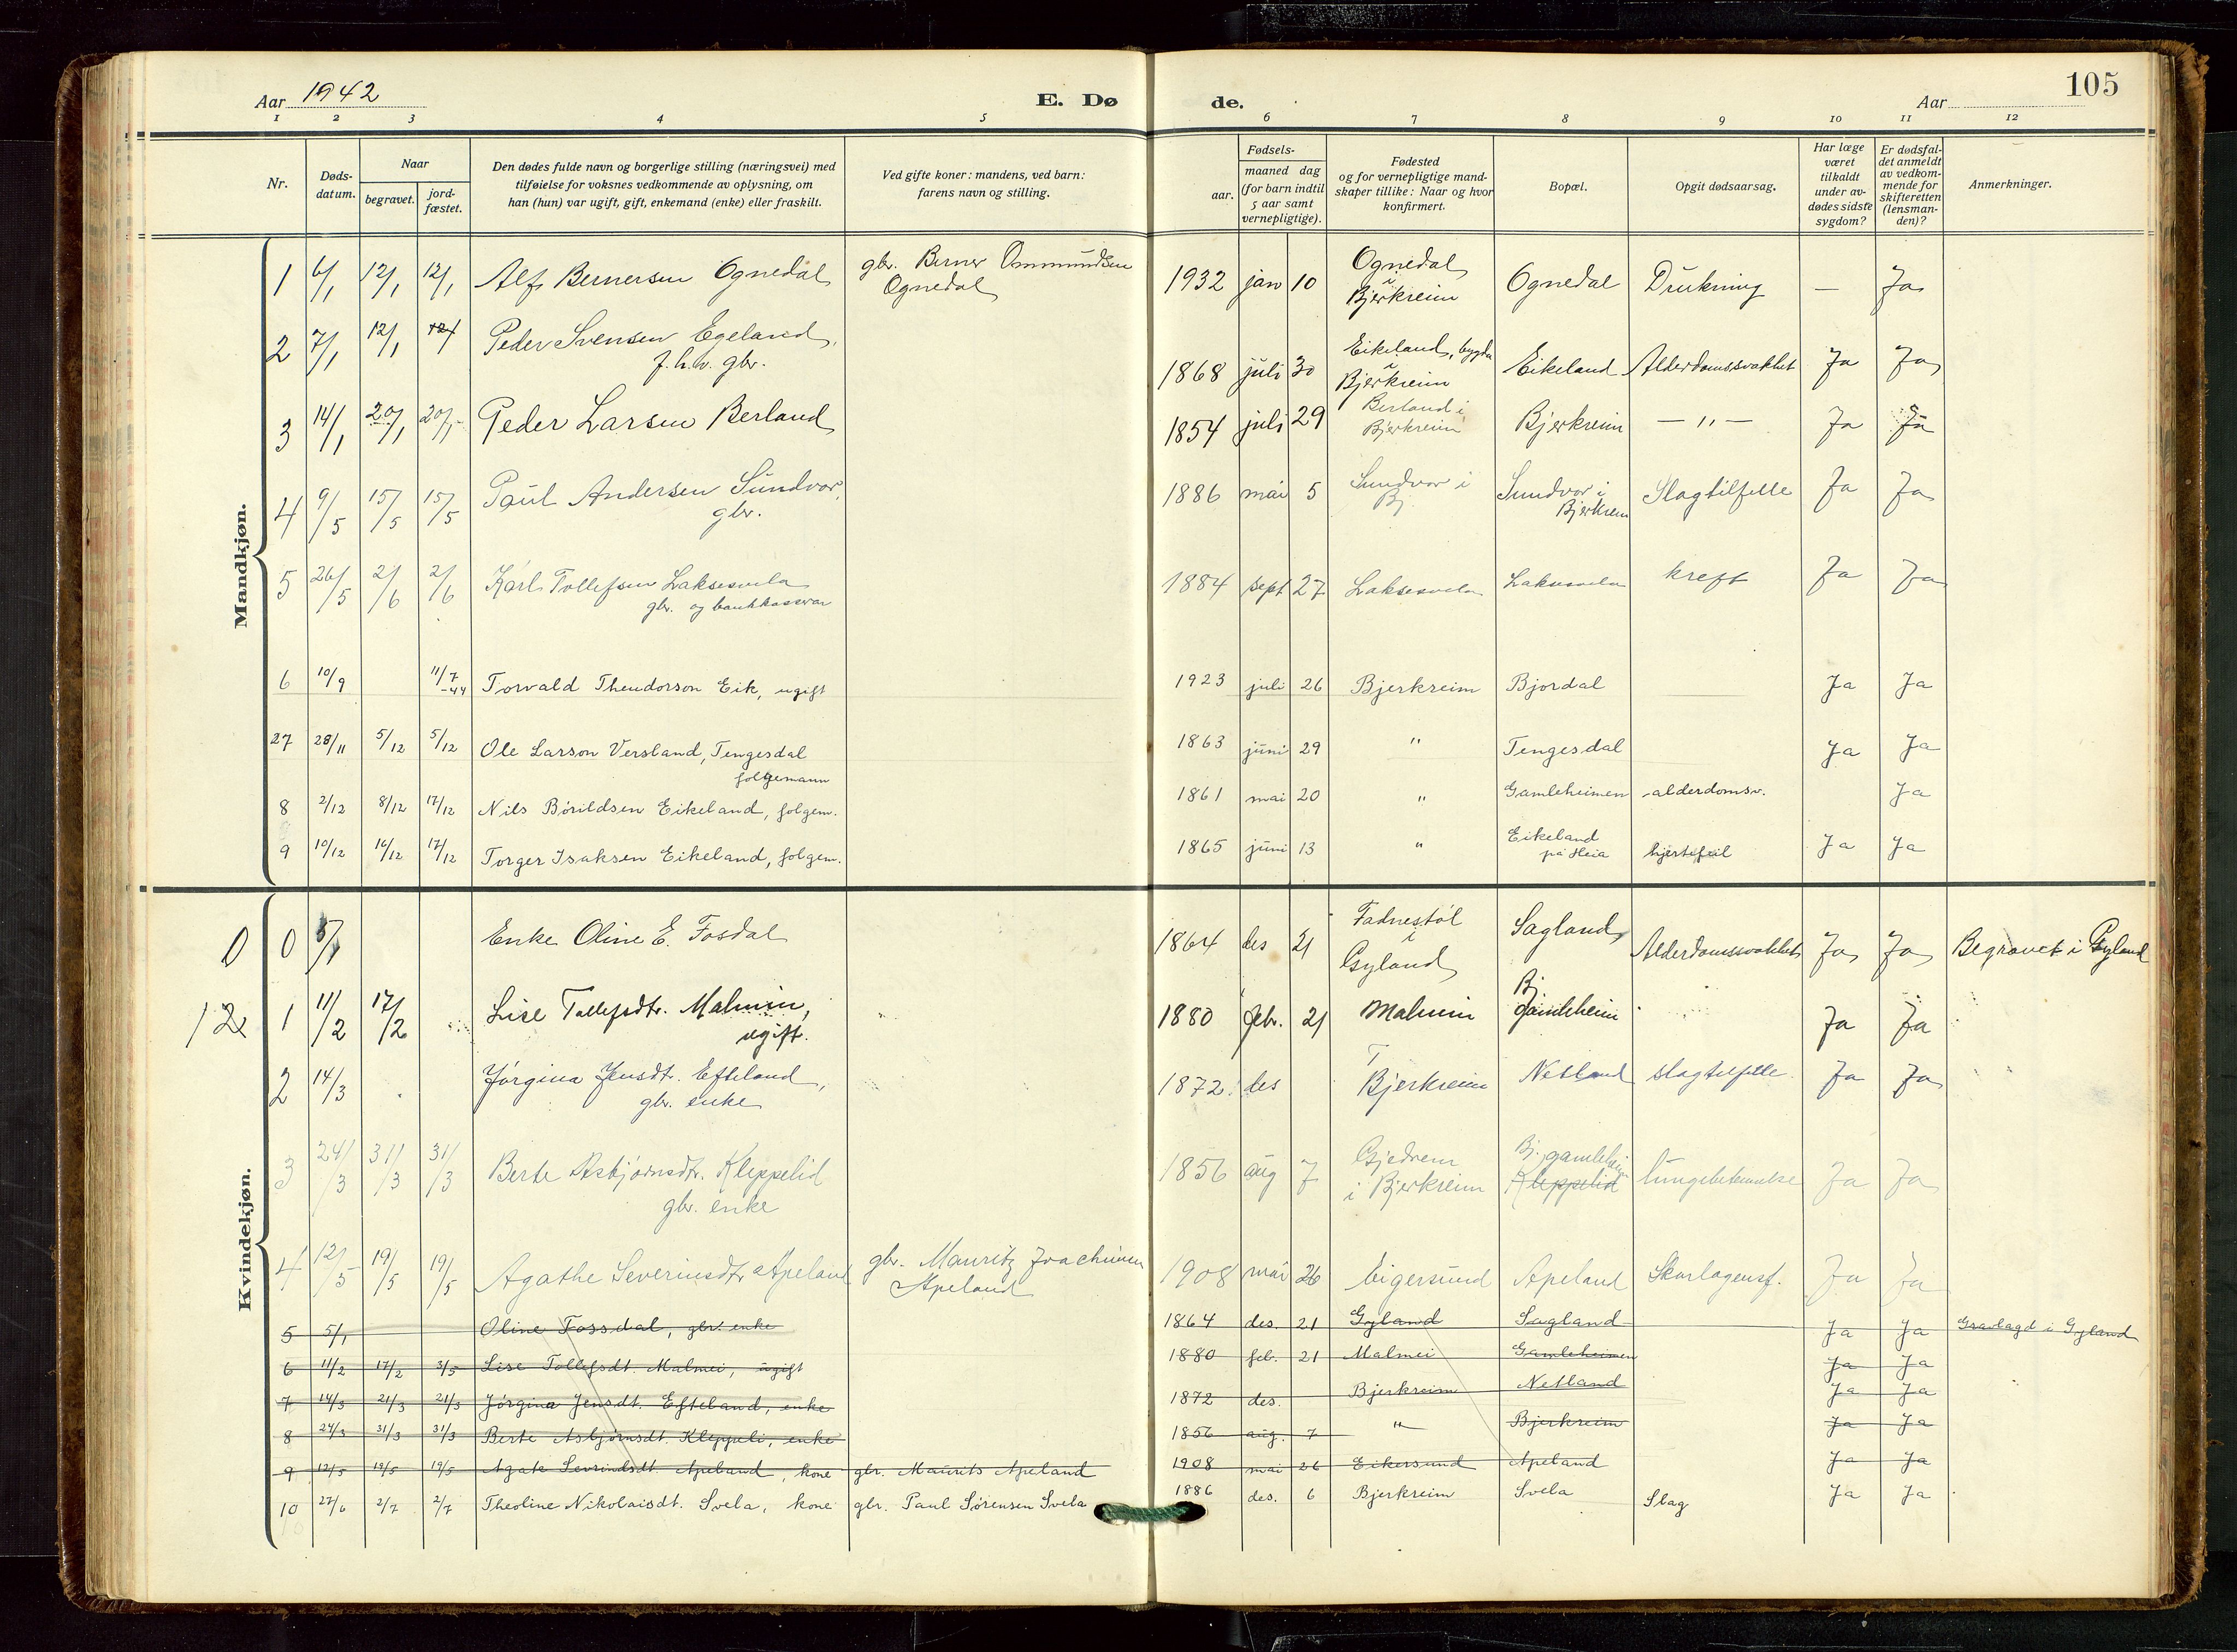 Aar 1942
E. Dø
de.
Aar
105
1 2 3 4 5 6 7 8 9 10 11 12
Nr.
Døds-
datum.
Naar
begravet.
jord-
fæstet.
Den dødes fulde navn og borgerlige stilling (næringsvei) med
tilføielse for voksnes vedkommende av oplysning, om
han (hun) var ugift, gift, enkemand (enke) eller fraskilt.
Ved gifte koner: mandens, ved barn:
farens navn og stilling.
Fødsels-
aar.
maaned dag
(for barn indtil
5 aar samt
vernepligtige).
Fødested
og for vernepligtige mand-
skaper tillike: Naar og hvor
konfirmert.
Bopæl.
Opgit dødsaarsag.
Har læge
været
tilkaldt
under av-
dødes sidste
sygdom?
Er dødsfal-
det anmeldt
av vedkom-
mende for
skifteretten
(lensman-
den)?
Anmerkninger.
Mandkjøn.
1 6/1 12/1 12/1 Alf Bernersen Ognedal gbr. Berner Ommundsen
Ognedal
1932 jan 10 Ognedal
i
Bjerkreim
Ognedal Drukning — Ja
2 7/1 12/1 12/1 Peder Svensen Egeland,
f.h.v. gbr.
1868 juli 30 Eikeland, bygda
i
Bjerkreim
Eikeland Alderdomssvakhet Ja Ja
3 14/1 20/1 20/1 Peder Larsen Berland
1854 juli 29 Berland i
Bjerkreim
Bjerkreim — " — Ja Ja
4 9/5 15/5 15/5 Paul Andersen Sundvor,
gbr.
1886 mai 5 Sundvor i
Bj.
Sundvor i
Bjerkrem
Slagtilfelle Ja Ja
5 26/5 2/6 2/6 Karl Tollefsen Laksesvela
gbr. og bankkasserar
1884 sept 27 Laksesvela Laksesvela kreft Ja Ja
6 10/9 11/7 -44 Torvald Theodorson Eik, ugift
1923 juli 26 Bjerkreim Bjordal Ja Ja
27 28/11 5/12 5/12 Ole Larson Versland, Tengesdal
folgemann
1863 juni 29 " Tengesdal Ja Ja
8 2/12 8/12 17/12 Nils Bórildsen Eikeland, folgem.
1861 mai 20 " Gamleheimen alderdomsv. Ja
9 10/12 16/12 17/12 Torger Isaksen Eikeland, folgem.
1865 juni 13 " Eikeland
på Heia
hjertefeil Ja Ja
Kvindekjøn.
0 0 5/1 Enke Oline E. Fosdal
1864 des 21 Fadnestøl
i
Gyland
Sagland, Alderdomssvakhet Ja Ja Begravet i Gyland
12 1 11/2 17/2 Lise Tollefsdtr. Malmin,
ugift.
1880 febr. 21 Malmin Bj.
gamleheim
Ja Ja
2 14/3 Jørgina Jensdt. Efteland,
gbr. enke
1872 des Bjerkreim Netland slagtilfelle. Ja Ja
3 24/3 31/3 31/3 Berte Asbjørnsdtr. Kleppelid
gbr. enke
1856 aug 7 Gjedrem
i Bjerkreim
Bj. gamleheim
Kleppelid
lungebetennelse Ja Ja
4 12/5 19/5 19/5 Agathe Severinsdtr Apeland gbr. Mauritz Joachimsen
Apeland
1908 mai 26 Eigersund Apeland Skarlagensf. Ja Ja
5 5/1 Oline Fossdal, gbr. enke
1864 des. 21 Gyland Sagland Ja Ja Gravlagd i Gyland
6 11/2 17/2 3/5 Lise Tollefsdt. Malmei, ugift
1880 feb. 21 Malmei Gamleheimen Ja Ja
7 14/3 21/3 21/3 Jørgina Jensdt. Efteland, enke
1872 des. Bjerkreim Netland Ja Ja
8 24/3 31/3 31/3 Berte Asbjørnsdt. Kleppeli, enke
1856 aug. 7 " Bjerkreim Ja Ja
9 12/5 19/5 19/5 Agate Sevrindsdt. Apeland, kone gbr. Maurits Apeland
1908 mai 26 Eikersund Apeland Ja Ja
10 27/6 2/7 2/7 Theoline Nikolaisdt. Svela, kone gbr. Paul Sørensen Svela
1886 des. 6 Bjerkreim Svela Slag Ja Ja